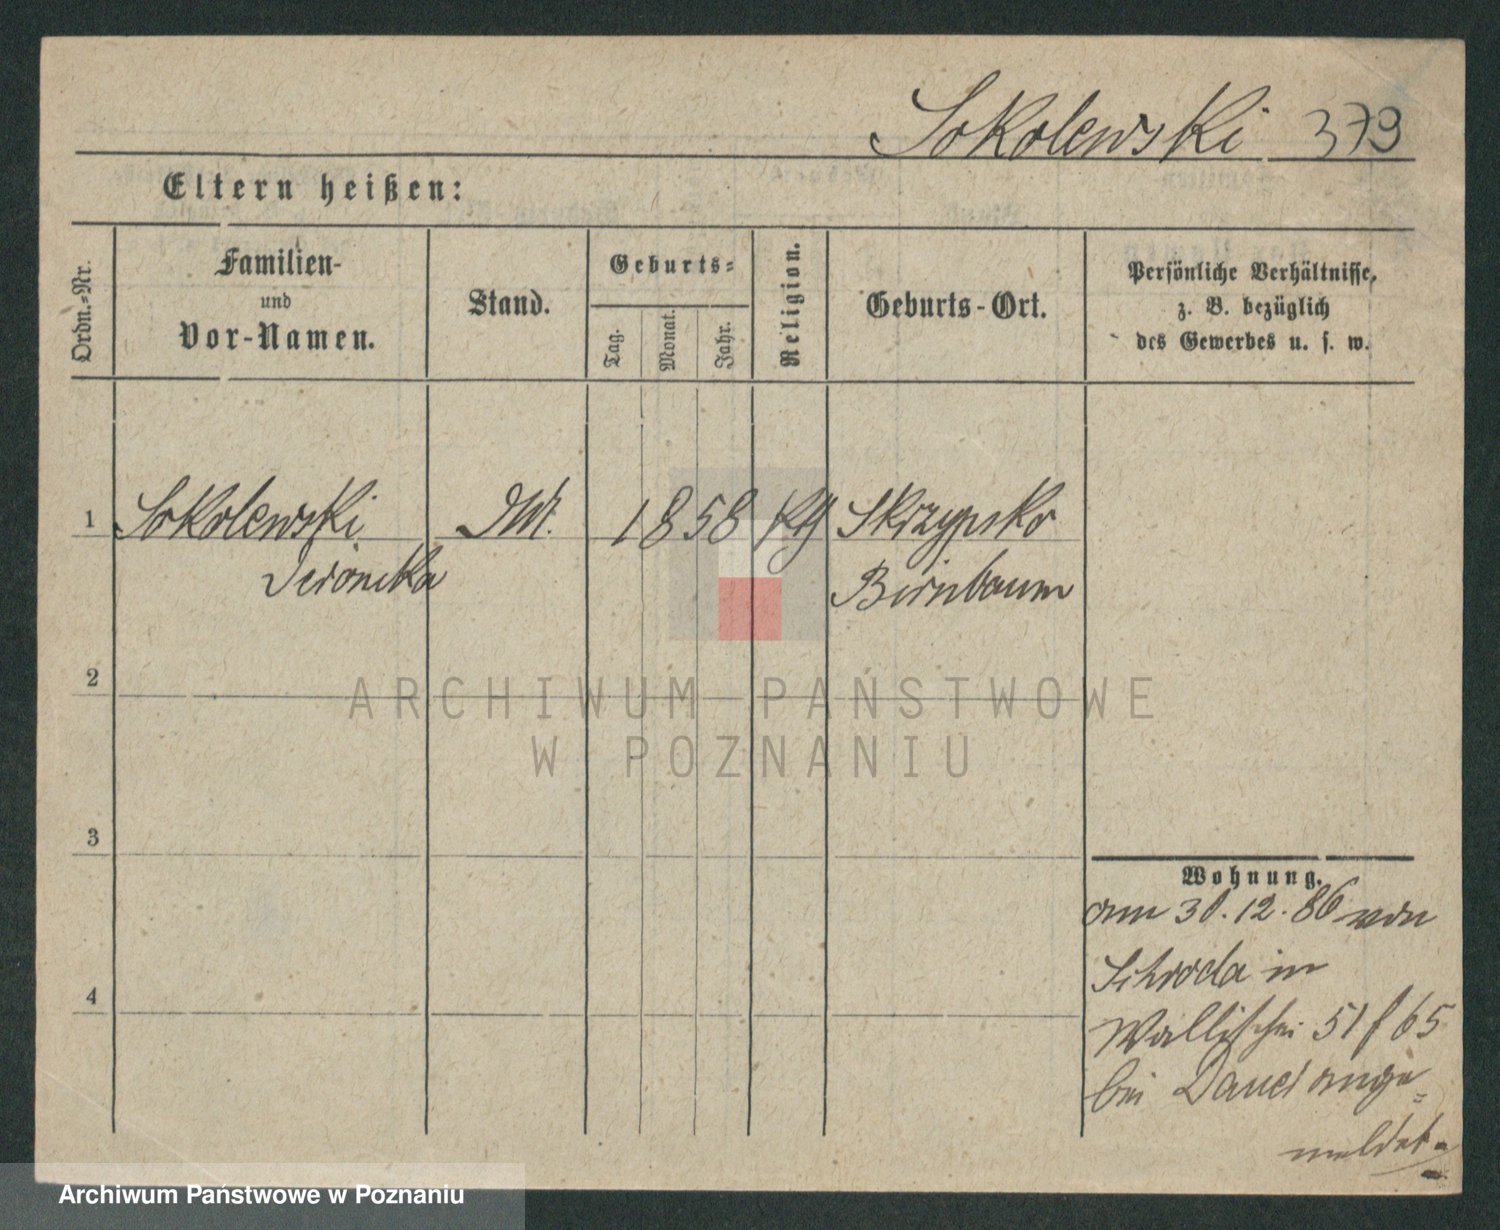 Sokolewski 379
Eltern heißen:
Ordn.-Nr.
Familien-
und
Vor-Namen.
Stand.
Geburts-
Tag.
Monat.
Jahr.
Religion.
Geburts-Ort.
Persönliche Verhältnisse,
z. B. bezüglich
des Gewerbes u. s. w.
1 Sokolewski 1858 Skrzypsko
Birnbaum
2
3
4
Wohnung.
am 30.12.86 von
Schroda in
Wallischei 51/65
bei ange=
meldet.
ARCHIWUM PAŃSTWOWE
W POZNANIU
Archiwum Państwowe w Poznaniu